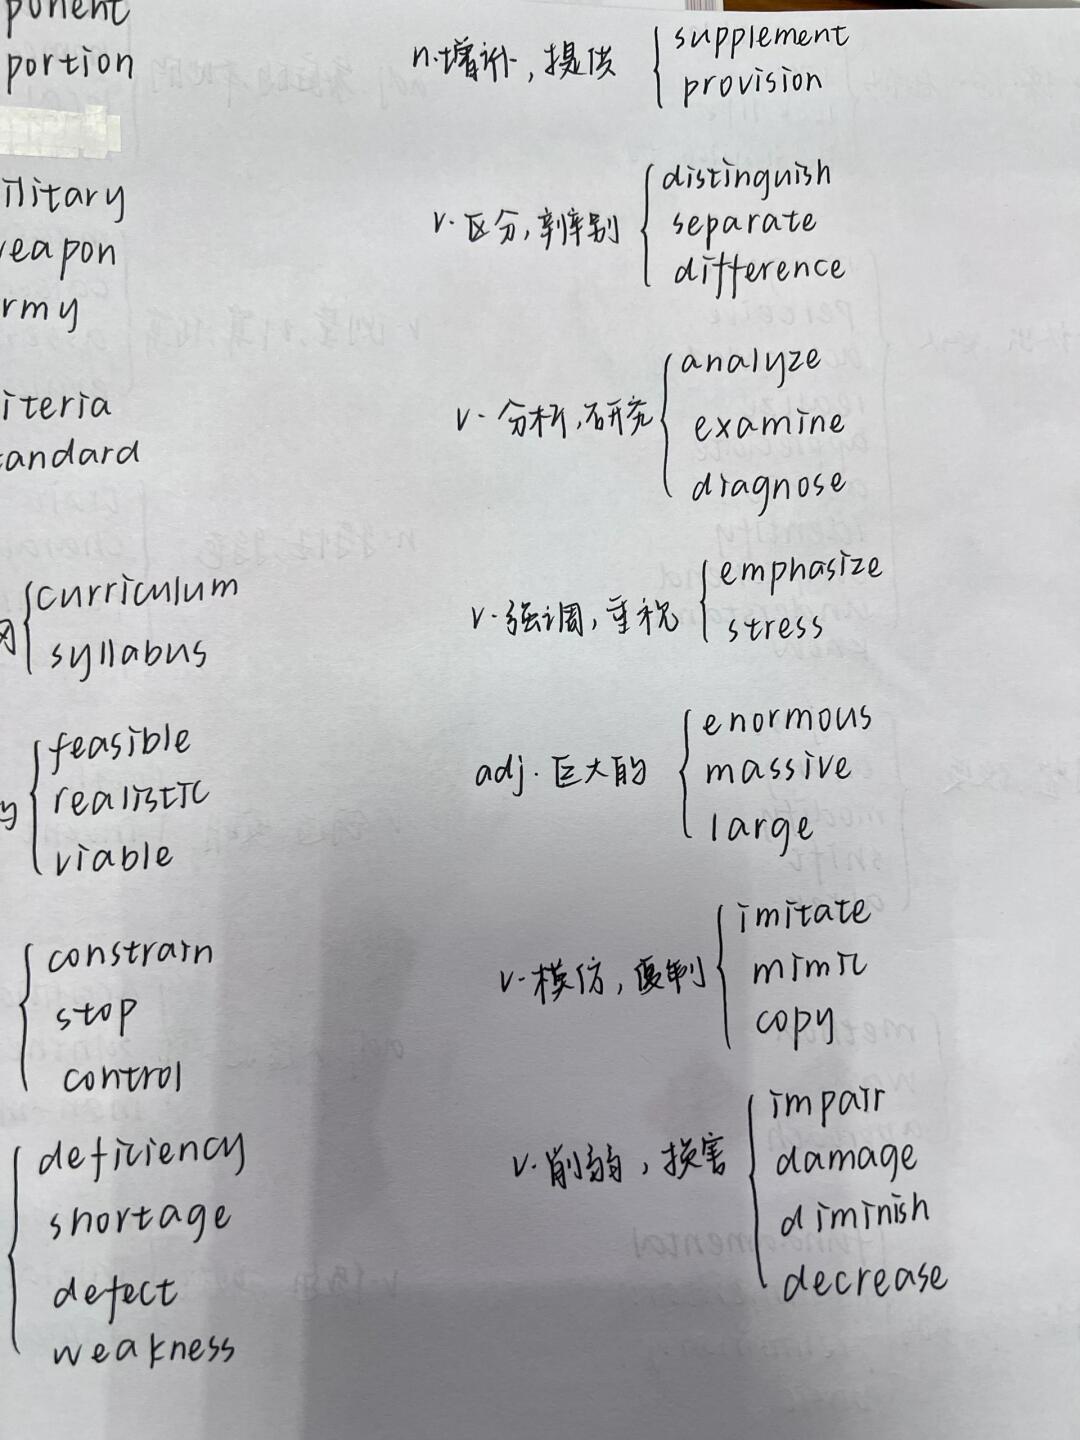 portion
curriculum
syllabus
feasible
realistic
viable
constrain
stop
control
deficiency
shortage
defect
weakness
n.增补,提供
supplement
provision
v.区分,辨别
distinguish
separate
difference
v.分析,研究
analyze
examine
diagnose
v.强调,重视
emphasize
stress
adj.巨大的
enormous
massive
large
v.模仿,复制
imitate
mimic
copy
v.削弱,损害
impair
damage
diminish
decrease